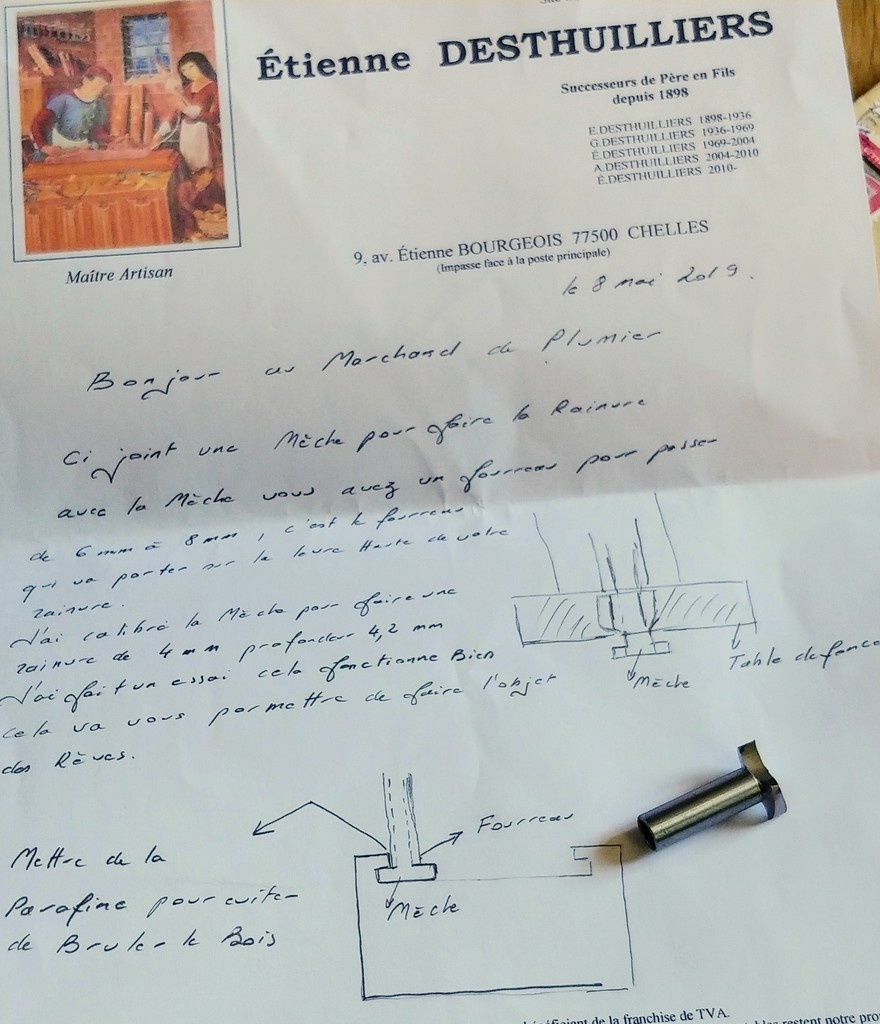 Étienne DESTHUILLIERS
Successeurs de Père en Fils
depuis 1898
E.DESTHUILLIERS 1898-1936
G.DESTHUILLIERS 1936-1969
É.DESTHUILLIERS 1969-2004
A.DESTHUILLIERS 2004-2010
É.DESTHUILLIERS 2010-
Maître Artisan
9, av. Étienne BOURGEOIS 77500 CHELLES
(Impasse face à la poste principale)
le 8 mai 2019.
Bonjour au Marchand de Plumier
Ci joint une Mèche pour faire la Rainure
avec la Mèche vous avez un fourreau pour passer
de 6 mm à 8 mm, c'est le fourreau
qui va porter sur la levre Haute de votre
rainure.
J'ai calibré la Mèche pour faire une
rainure de 4 mm profondeur 4,2 mm
J'ai fait un essai cela fonctionne Bien
cela va vous permettre de faire l'objet
des Rêves.
Mèche
Table defonce
Fourreau
Mettre de la
Parafine pour eviter
de Bruler le Bois
Mèche
de la franchise de TVA.
restent notre pro